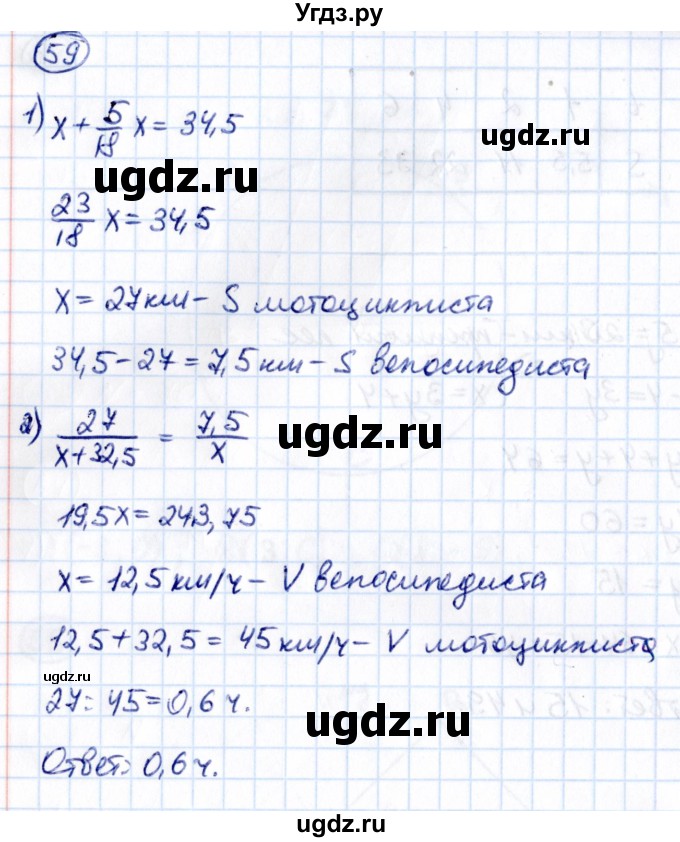 Угдз.ру
59
1) x + 5/18 x = 34,5
ugdz.ru
23/18 x = 34,5
x = 27 км – S мотоциклиста
34,5 – 27 = 7,5 км – S велосипедиста
2) 27/(x + 32,5) = 7,5/x
ugdz.ru
19,5x = 243,75
x = 12,5 км/ч – V велосипедиста
12,5 + 32,5 = 45 км/ч – V мотоциклиста
ugdz.ru
27 : 45 = 0,6 ч.
ugdz.ru
Ответ: 0,6 ч.
ugdz.ru